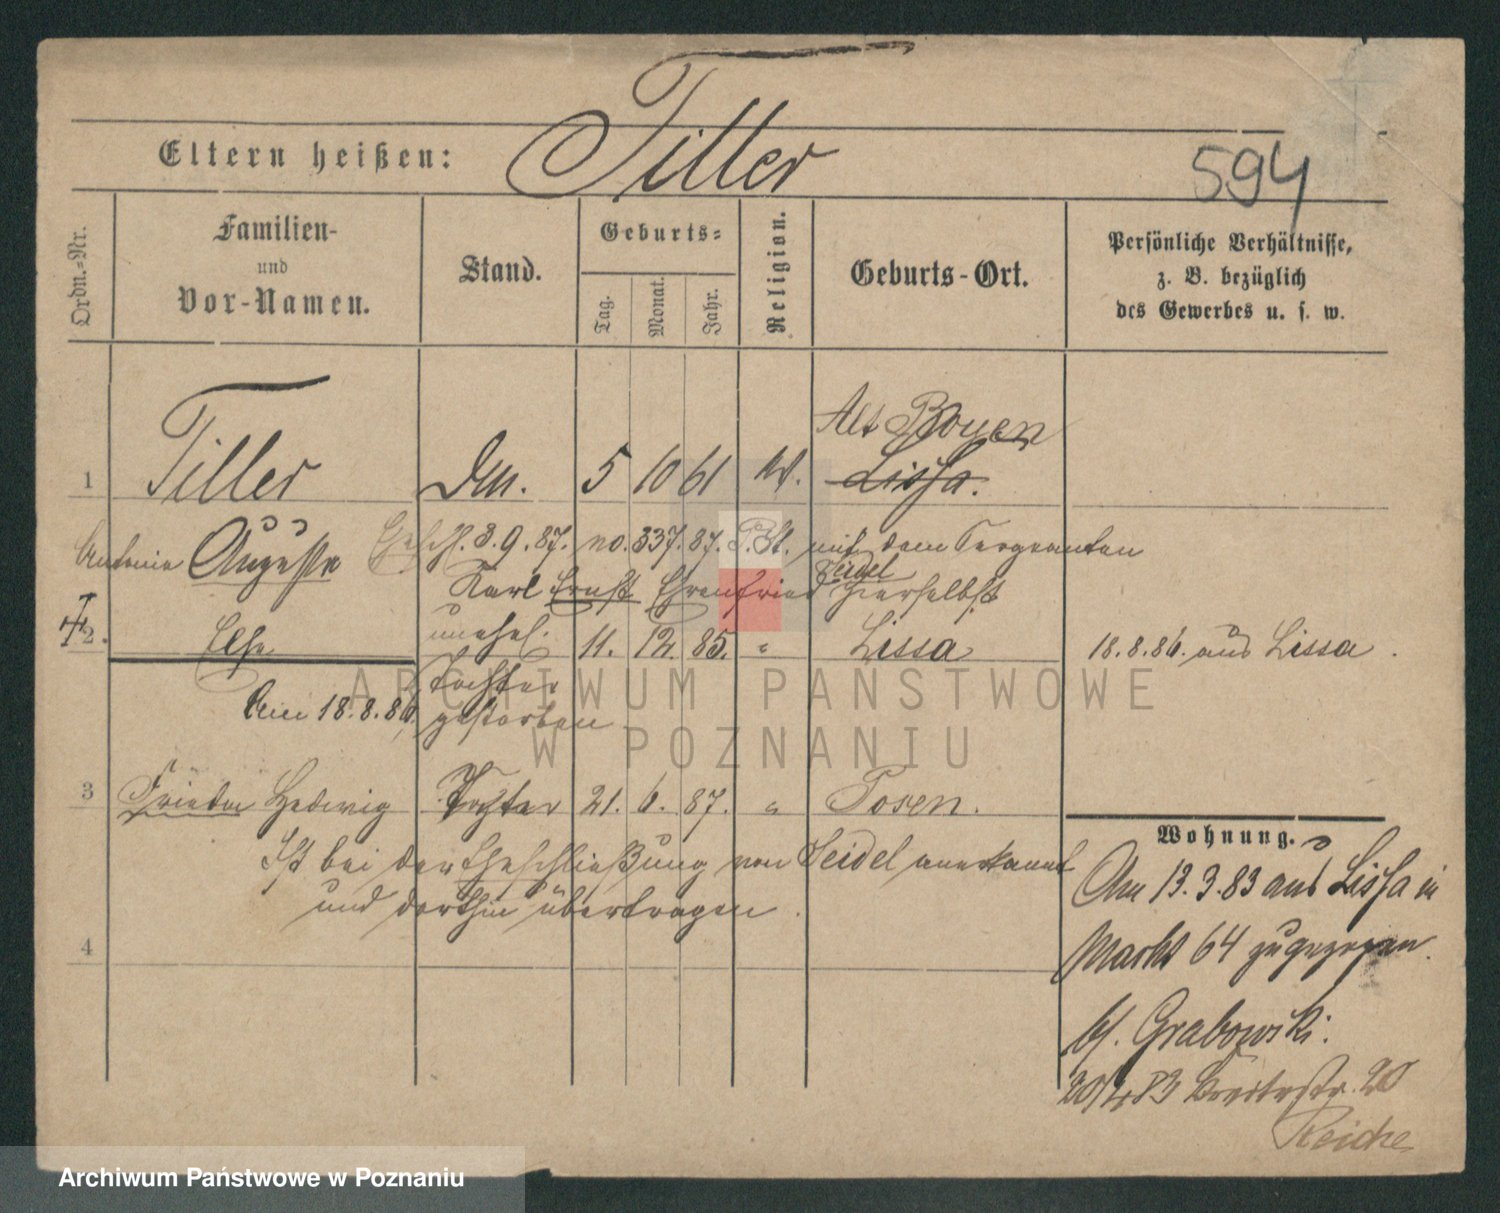 Tiller
Eltern heißen:
594
Ordn.-Nr.
Familien-
und
Vor-Namen.
Stand.
Geburts-
Tag.
Monat.
Jahr.
Religion.
Geburts-Ort.
Persönliche Verhältnisse,
z. B. bezüglich
des Gewerbes u. s. w.
Alt Boyen
1 Tiller 5 10 61 Lissa.
Antonie Auguste Eheschl. 3.9.87. no. 337. 87. P. St. mit dem Sergeanten
Seidel
Karl Ernst Ehrenfried hierselbst
2. Else unehel. 11. 12. 85. " Lissa 18.8.86. aus Lissa.
Tochter
Am 18.8.86. gestorben
3 Frieda Hedwig Tochter 21. 6. 87. " Posen.
Ist bei der Eheschließung von Seidel anerkannt
und dorthin übertragen.
4
Wohnung.
Am 13.3.83 aus Lissa in
Markt 64 zugezogen.
b/. Grabowski.
20/4 83 Breitestr. 20
Reiche
ARCHIWUM PAŃSTWOWE
W POZNANIU
Archiwum Państwowe w Poznaniu